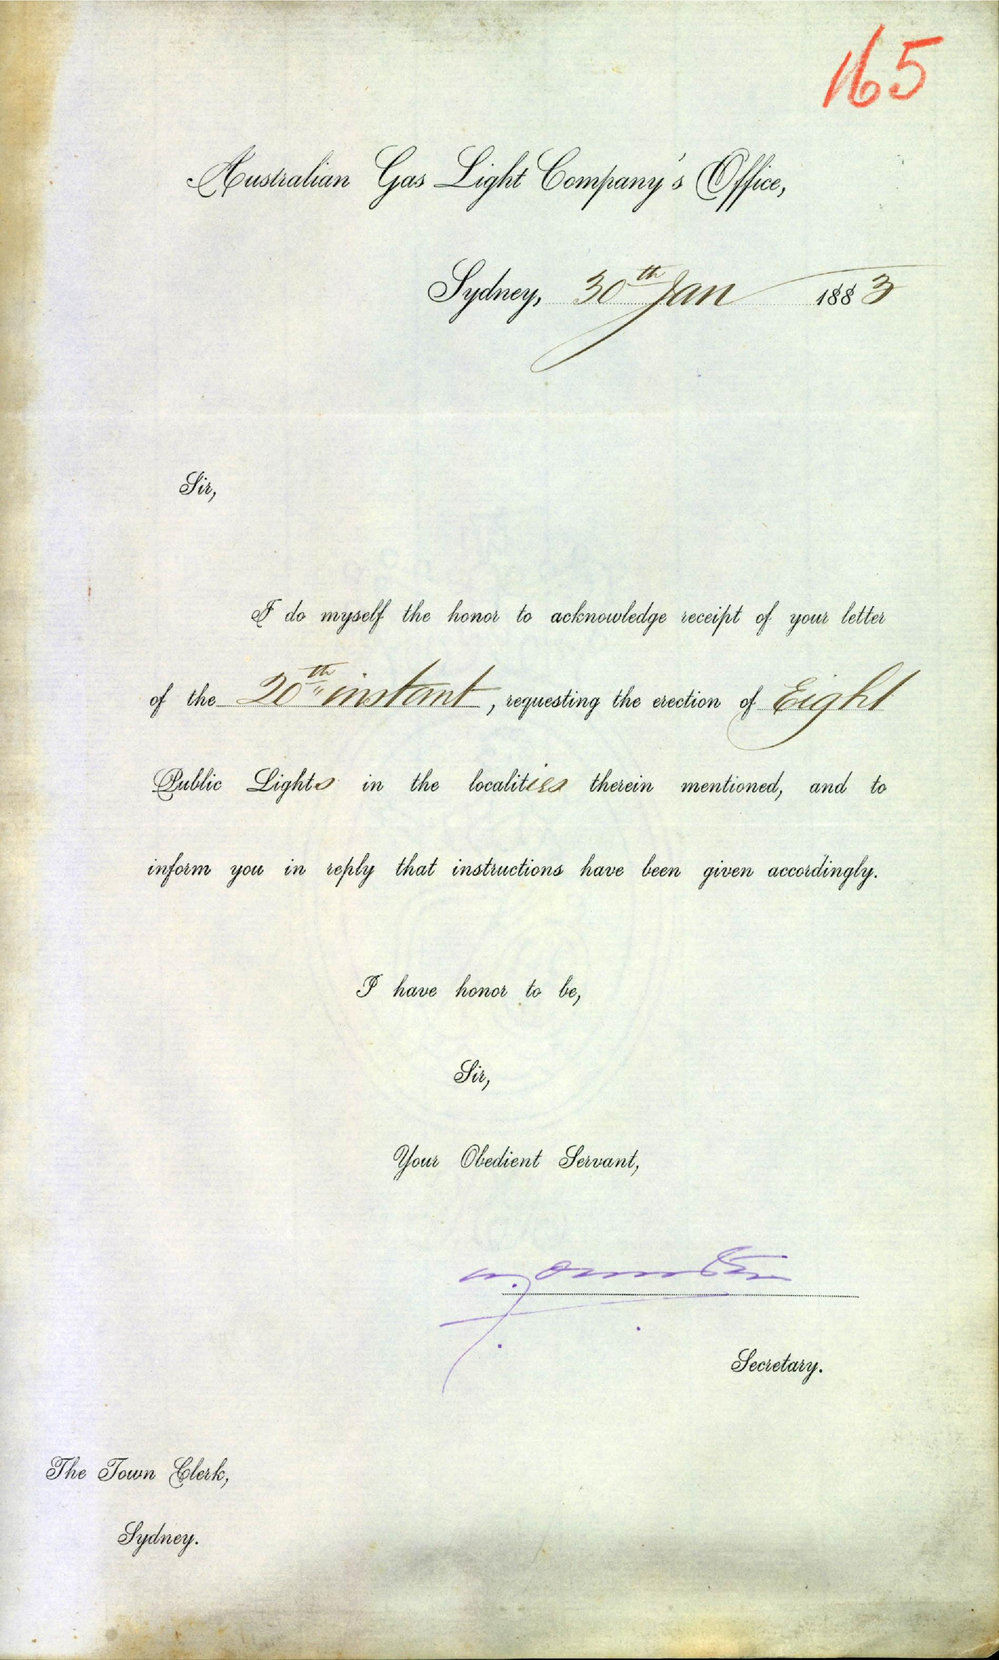 165
Australian Gas Light Company's Office,
Sydney, 30th Jan 1883
Sir,
I do myself the honor to acknowledge receipt of your letter
of the 20th instant, requesting the erection of Eight
Public Lights in the localities therein mentioned, and to
inform you in reply that instructions have been given accordingly.
I have honor to be,
Sir,
Your Obedient Servant,
Secretary.
The Town Clerk,
Sydney.